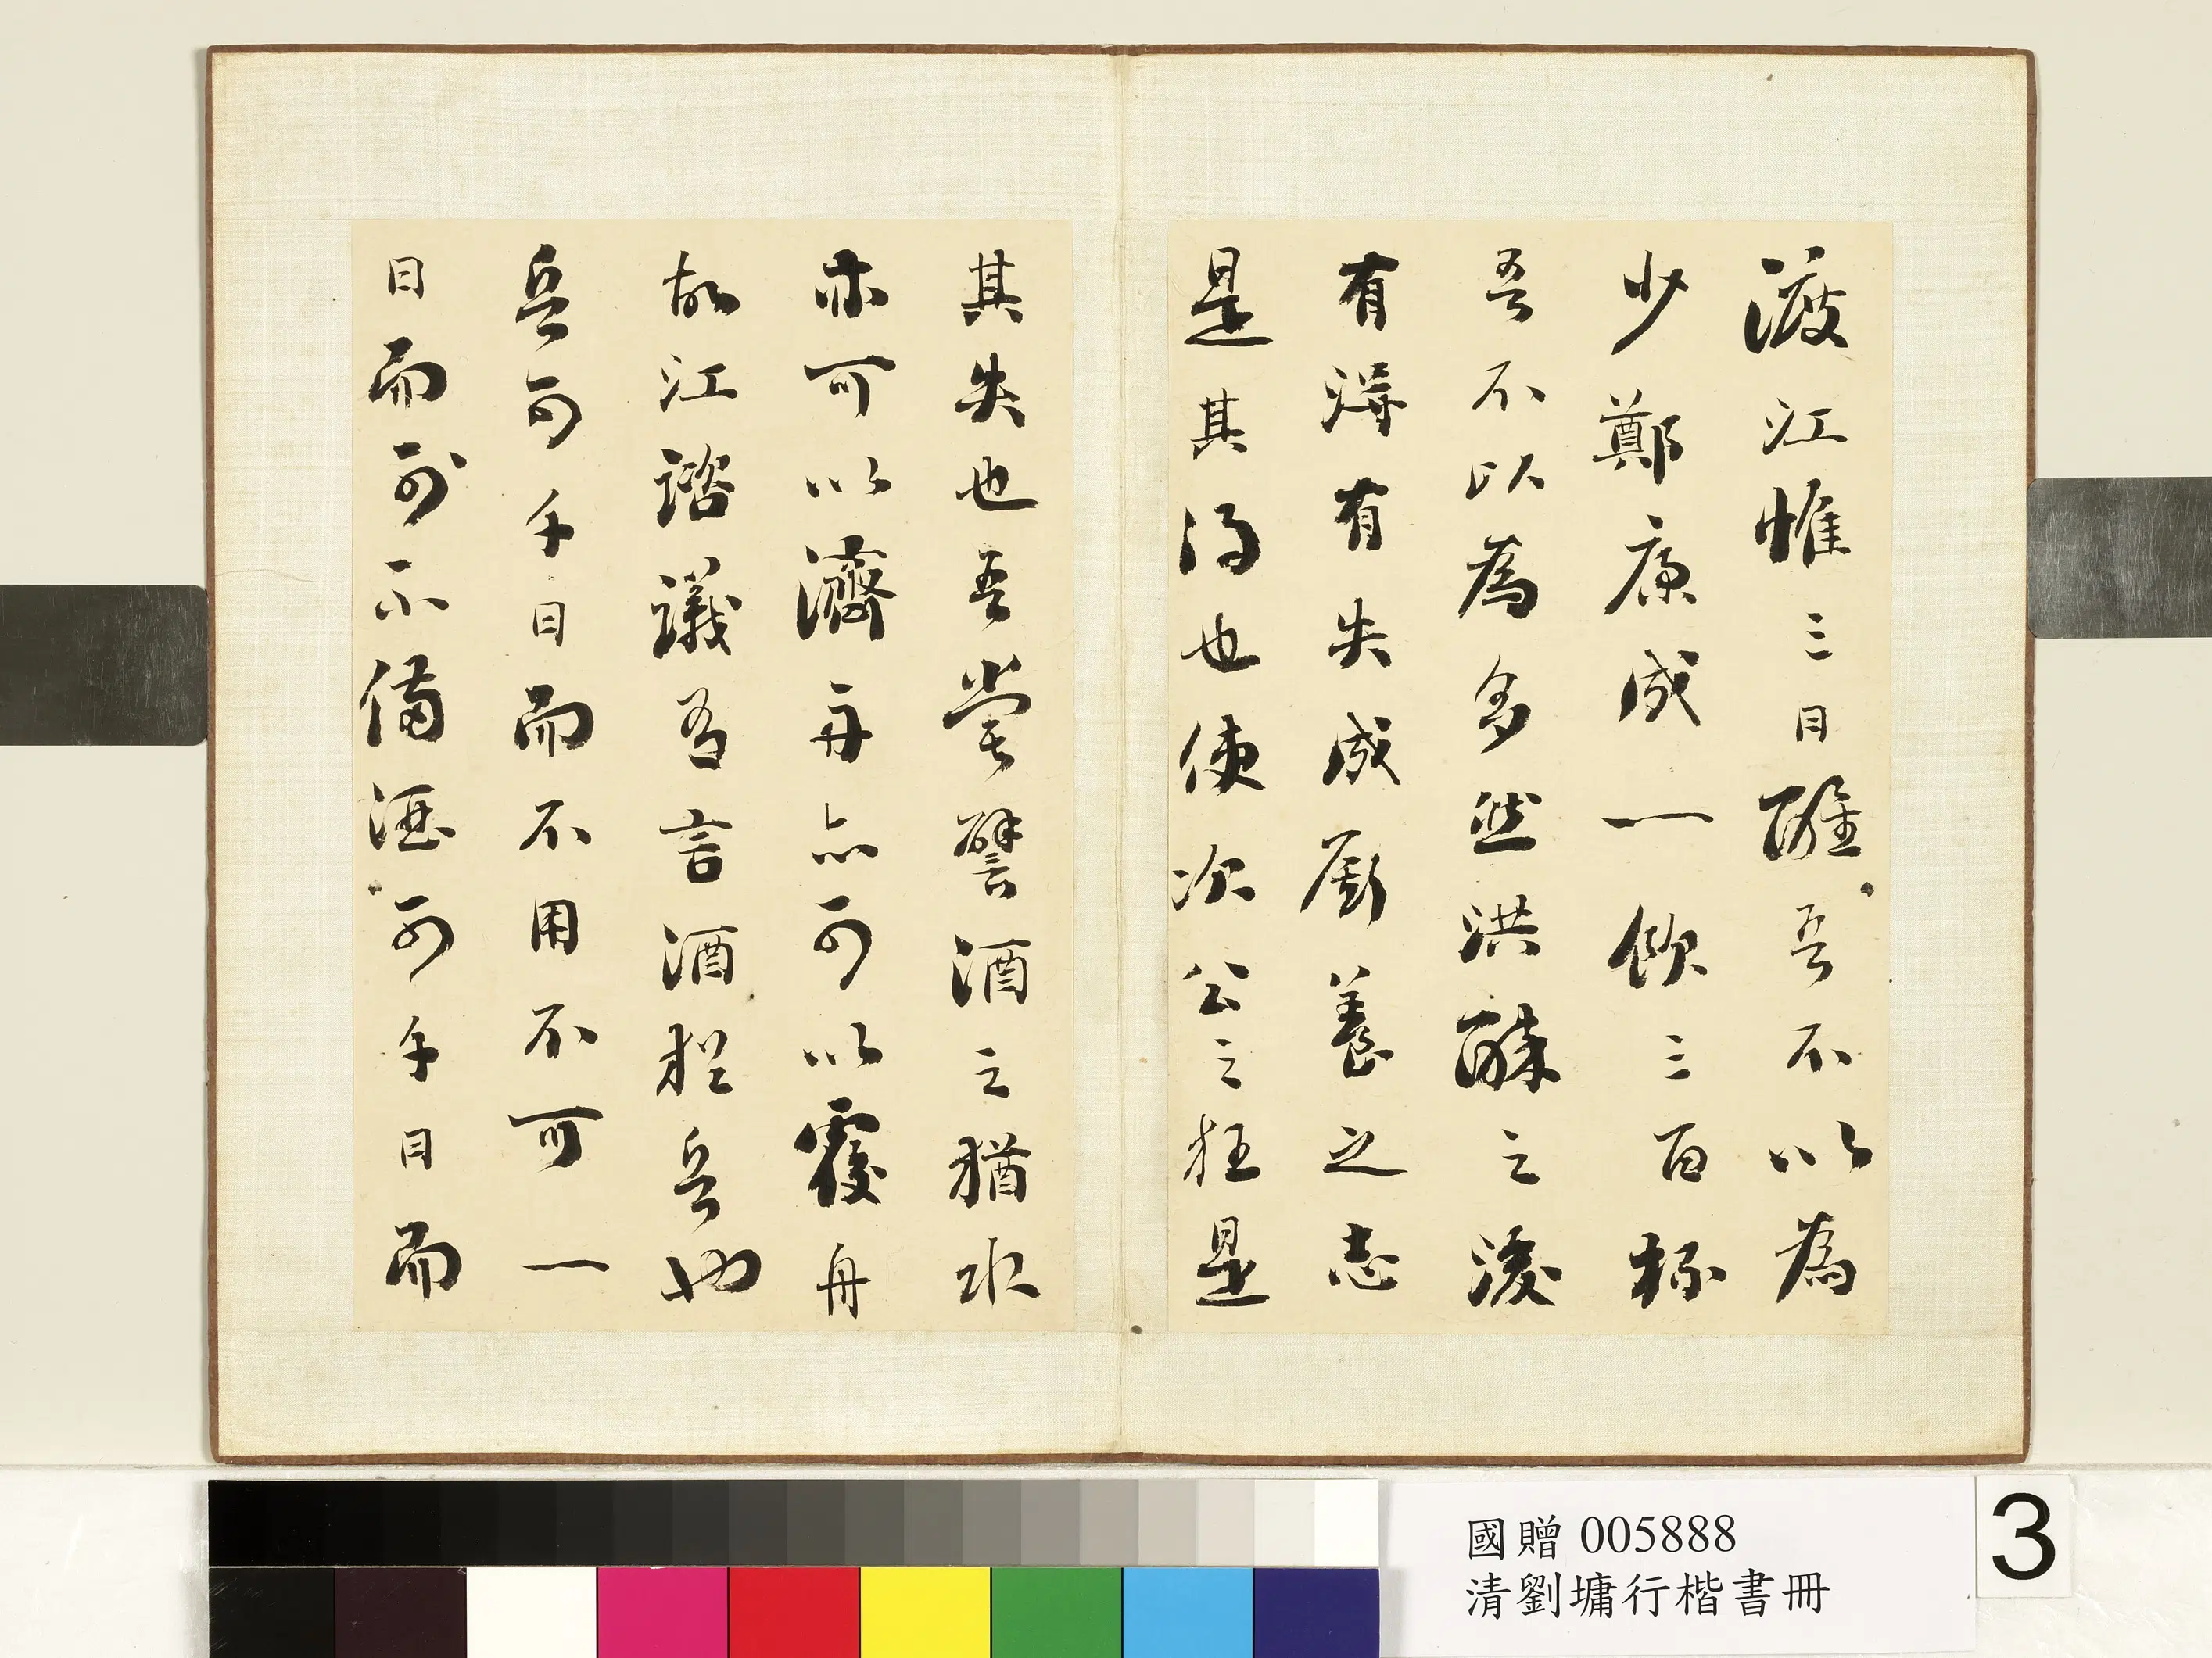 渡江惟三日醒吾不以為
少鄭康成一飲三百杯
吾不以為多然洪醉之後
有得有失成廝養之志
是其得也使次公之狂是
其失也吾嘗譬酒之猶水
亦可以濟舟亦可以覆舟
故江諮議有言酒猶兵也
兵可千日而不用不可一
日而不備酒可千日而
國贈 005888
清劉墉行楷書冊
3